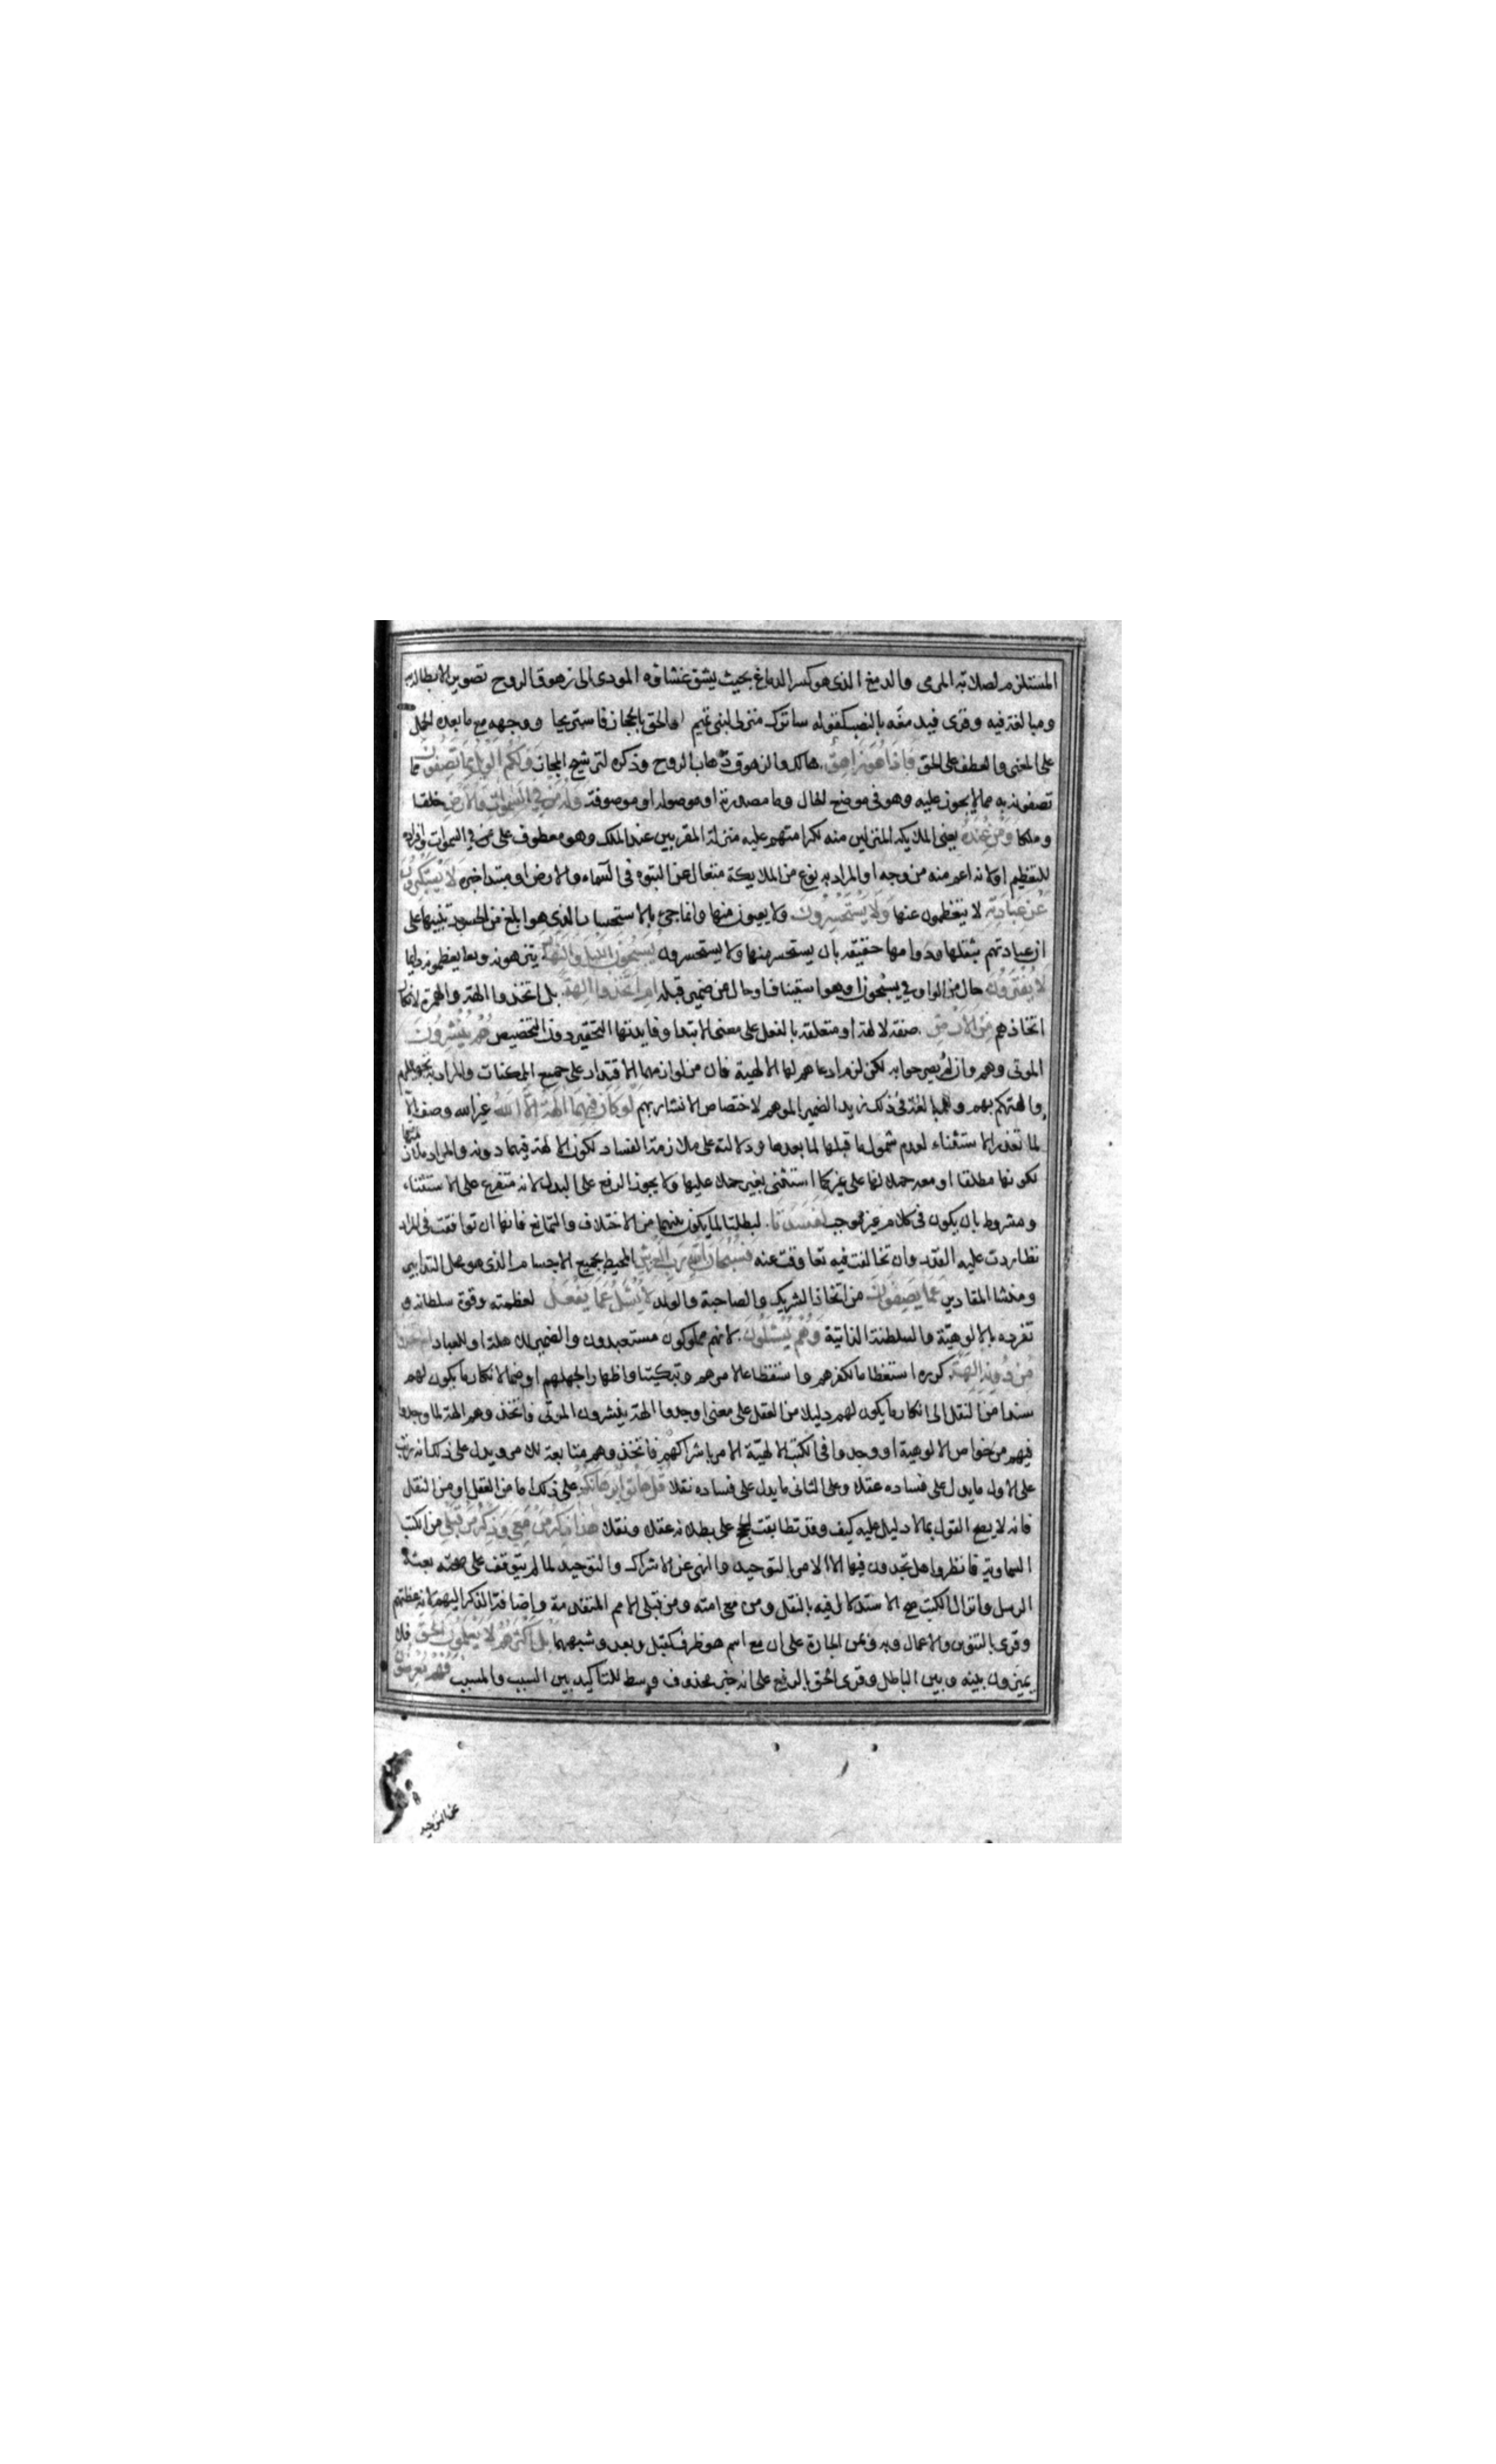 المستلزم لصلابة المرمى والدمغ الذى هو كسر الدماغ بحيث يشق غشاؤه المودى الى زهوق الروح تصويرا لابطاله به
ومبالغة فيه وقرى فيدمغه بالنصب كقوله ساترك منزلى لبنى تميم والحق بالحجاز فاستريحا ووجهه مع بعده الحمل
على المعنى والعطف على الحق فَاِذَا هُوَ زَاهِقٌ هالك والزهوق ذهاب الروح وذكره لترشيح المجاز وَلَكُمُ الْوَيْلُ مِمَّا تَصِفُونَ مما
تصفونه به مما لا يجوز عليه وهو فى موضع الحال وما مصدرية او موصولة او موصوفة وَلَهُ مَنْ فِي السَّمٰوَاتِ وَالْاَرْضِ خلقا
وملكا وَمَنْ عِنْدَهُ يعنى الملايكة المنزلين منه لكرامتهم عليه منزلة المقربين عند الملك وهو معطوف على من فى السموات وافراده
للتعظيم او لانه اعم منه من وجه او المراد به نوع من الملايكة متعال عن التبوء فى السماء والارض او مبتدا خبره لَا يَسْتَكْبِرُونَ
عَنْ عِبَادَتِهِ لا يتعظمون عنها وَلَا يَسْتَحْسِرُونَ ولا يعيون منها وانما جئ بالاستحسار الذى هو ابلغ من الحسور تنبيها على
ان عبادتهم بثقلها ودوامها حقيقة بان يستحسر منها ولا يستحسرون يُسَبِّحُونَ اللَّيْلَ وَالنَّهَارَ ينزهونه ويعظمونه دايما
لَا يَفْتُرُونَ حال من الواو فى يسبحون او هو استيناف او حال من ضمير قبله اَمِ اتَّخَذُوا اٰلِهَةً بل اتخذوا الهة والهمزة لانكار
اتخاذهم مِنَ الْاَرْضِ صفة لالهة او متعلقة بالفعل على معنى الابتدا وفايدتها التحقير دون التخصيص هُمْ يُنْشِرُونَ
الموتى وهم وان لم يصرحوا به لكن لزم ادعاهم لها الالهية فان من لوازمها الاقتدار على جميع الممكنات والمراد به تجهيلهم
والتهكم بهم وللمبالغة فى ذلك زيد الضمير الموهم لاختصاص الانشار بهم لَوْ كَانَ فِيهِمَا اٰلِهَةٌ اِلَّا اللّٰهُ غير الله وصف بالا
لما تعذر الاستثناء لعدم شمول ما قبلها لما بعدها ودلالته على ملازمة الفساد لكون الالهة فيهما دونه والمراد ملازمته
لكونها مطلقا او معه حملا لها على غير كما استثنى بغير حملا عليها ولا يجوز الرفع على البدل لانه متفرع على الاستثناء
ومشروط بان يكون فى كلام غير موجب لَفَسَدَتَا لبطلتا لما يكون بينهما من الاختلاف والتمانع فانها ان توافقت فى المراد
تطاردت عليه القدر وان تخالفت فيه تعاوقت عنه فَسُبْحَانَ اللّٰهِ رَبِّ الْعَرْشِ المحيط بجميع الاجسام الذى هو محل التدابير
ومنشا المقادير عَمَّا يَصِفُونَ من اتخاذ الشريك والصاحبة والولد لَا يُسْئَلُ عَمَّا يَفْعَلُ لعظمته وقوة سلطانه و
تفرده بالالوهية والسلطنة الذاتية وَهُمْ يُسْئَلُونَ لانهم مملوكون مستعبدون والضمير للالهة او للعباد اَمِ اتَّخَذُوا
مِنْ دُونِهِ اٰلِهَةً كرره استعظاما لكفرهم واستفظاعا لامرهم وتبكيتا واظهارا لجهلهم او ضما لانكار ما يكون لهم
سندا من النقل الى انكار ما يكون لهم دليلا من العقل على معنى اوجدوا الهة ينشرون الموتى فاتخذوهم الهة لما وجدوا
فيهم من خواص الالوهية او وجدوا فى الكتب الالهية الامر باشراكهم فاتخذوهم متابعة للامر ويدل على ذلك انه رتب
على الاول ما يدل على فساده عقلا وعلى الثانى ما يدل على فساده نقلا قُلْ هَاتُوا بُرْهَانَكُمْ على ذلك اما من العقل او من النقل
فانه لا يصح القول بما لا دليل عليه كيف وقد تطابقت الحجج على بطلانه عقلا ونقلا هٰذَا ذِكْرُ مَنْ مَعِيَ وَذِكْرُ مَنْ قَبْلِي من الكتب
السماوية فانظروا هل تجدون فيها الا الامر بالتوحيد والنهى عن الاشراك والتوحيد لما لم يتوقف على صحته بعثة
الرسل وانزال الكتب صح الاستدلال فيه بالنقل ومن معى امته ومن قبلى الامم المتقدمة واضافة الذكر اليهم لانه عظتهم
وقرى بالتنوين والاعمال وبه وبمن الجارة على ان مع اسم هو ظرف كقبل وبعد وشبههما بَلْ اَكْثَرُهُمْ لَا يَعْلَمُونَ الْحَقَّ فلا
يميزون بينه وبين الباطل وقرى الحق بالرفع على انه خبر محذوف وسط للتاكيد بين السبب والمسبب فَهُمْ مُعْرِضُونَ
عن التوحيد